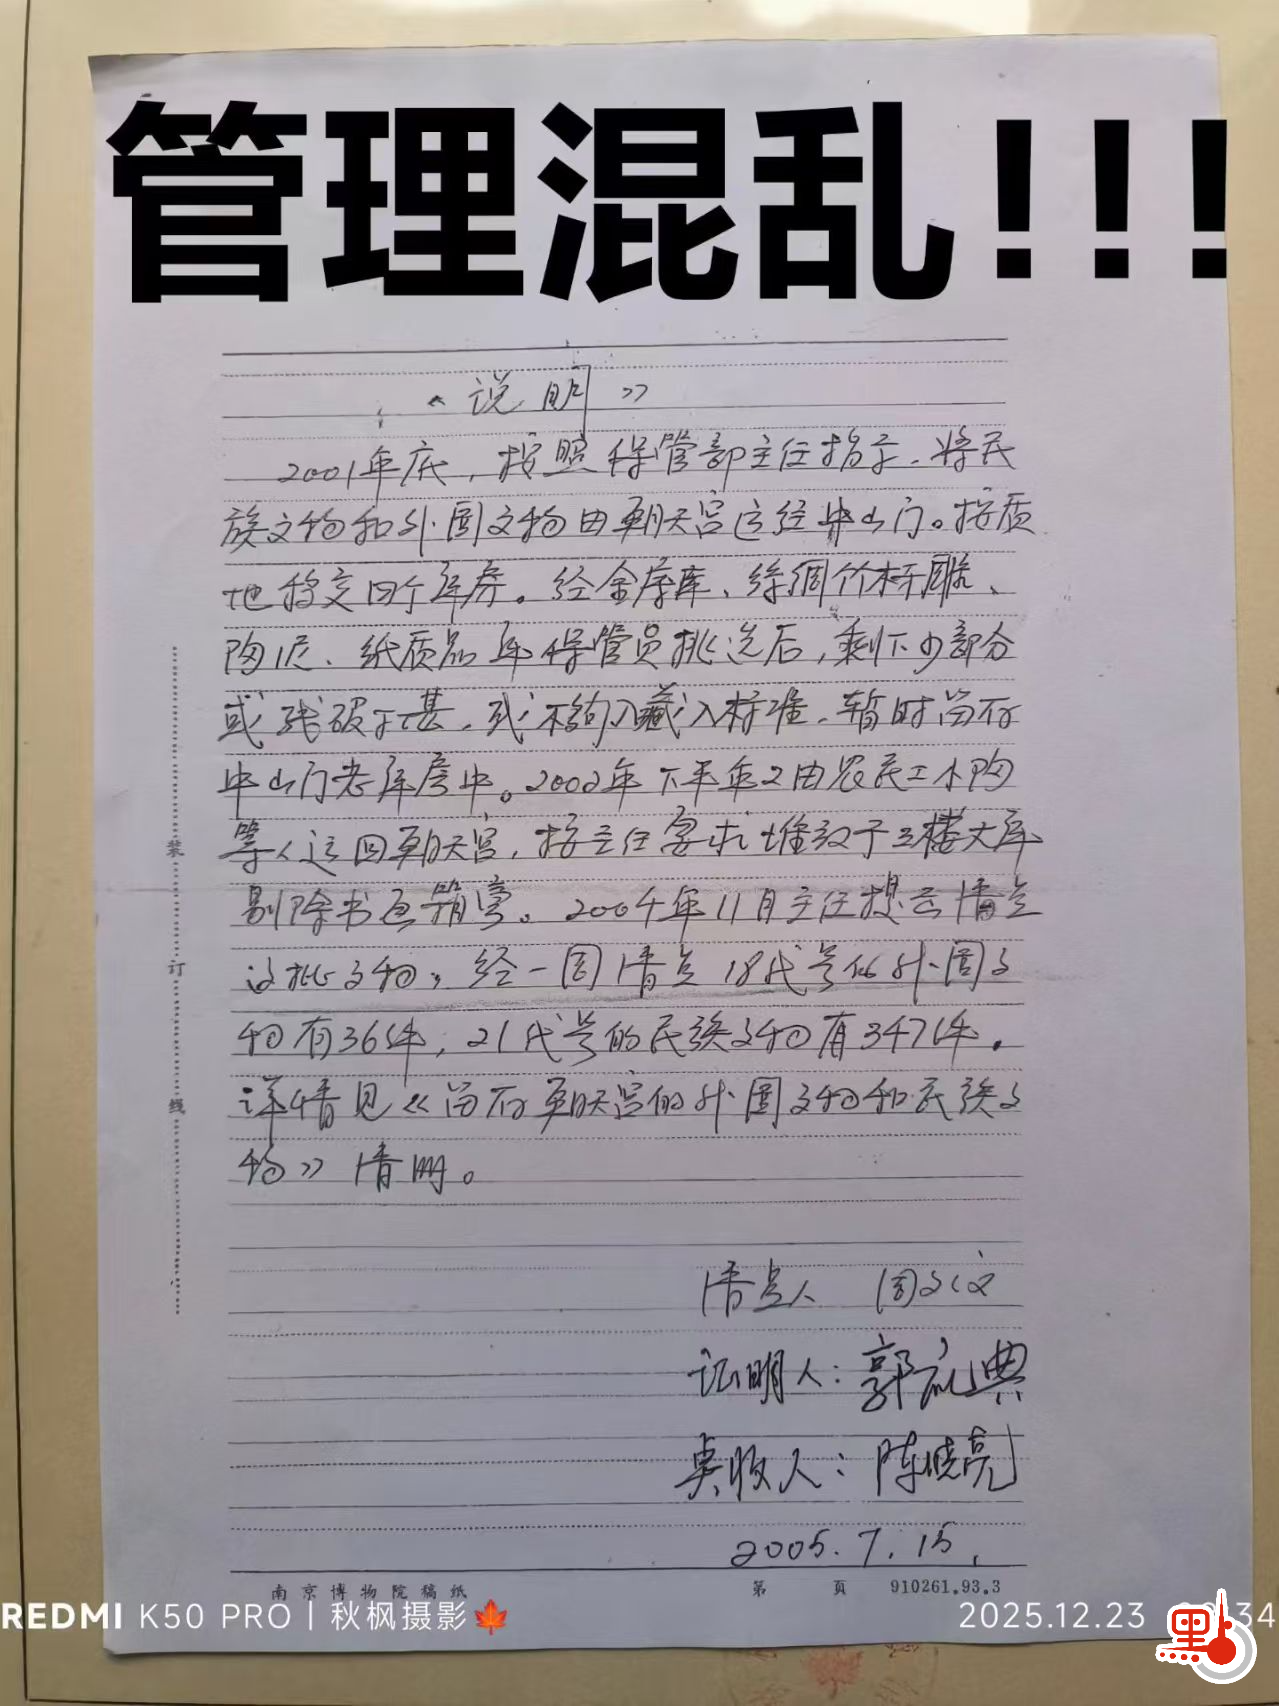 管理混乱!!!
《说明》
2001年底，按照保管部主任指示，将民
族文物和外国文物由朝天宫运经中山门。按质
地移交四个库房。经金库、丝绸竹木牙雕、
陶瓷、纸质品库保管员挑选后，剩下少部分
或残破不甚，或不够入藏入标准，暂时留存
中山门老库房中。2002年下半年又由农民工小陶
等人运回朝天宫，按主任要求堆放于三楼大库
剔除书画箱旁。2004年11月主任提出清点
这批文物，经一周清点18代号的外国文
物有36件，21代号的民族文物有347件。
详情见《留存朝天宫的外国文物和民族文
物》清册。
清点人 周文
证明人：郭礼典
点收人：陈晓亮
2005.7.15
装
订
线
南京博物院稿纸 第 页 910261.93.3
REDMI K50 PRO | 秋枫摄影 2025.12.23
点